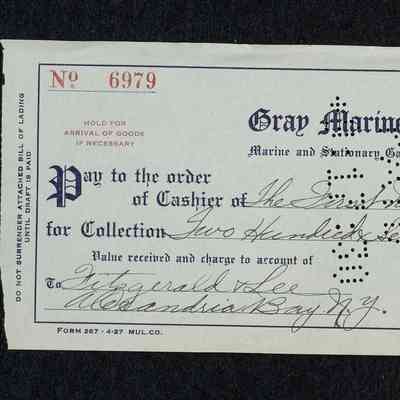 No. 6979
HOLD FOR
ARRIVAL OF GOODS
IF NECESSARY
DO NOT SURRENDER ATTACHED BILL OF LADING
UNTIL DRAFT IS PAID
Gray Marine
Marine and Stationary Ga
Pay to the order
of Cashier of The First
for Collection Two Hundred
Value received and charge to account of
To Fitzgerald & Lee
Alexandria Bay N.Y.
FORM 267 - 4-27 MUL.CO.